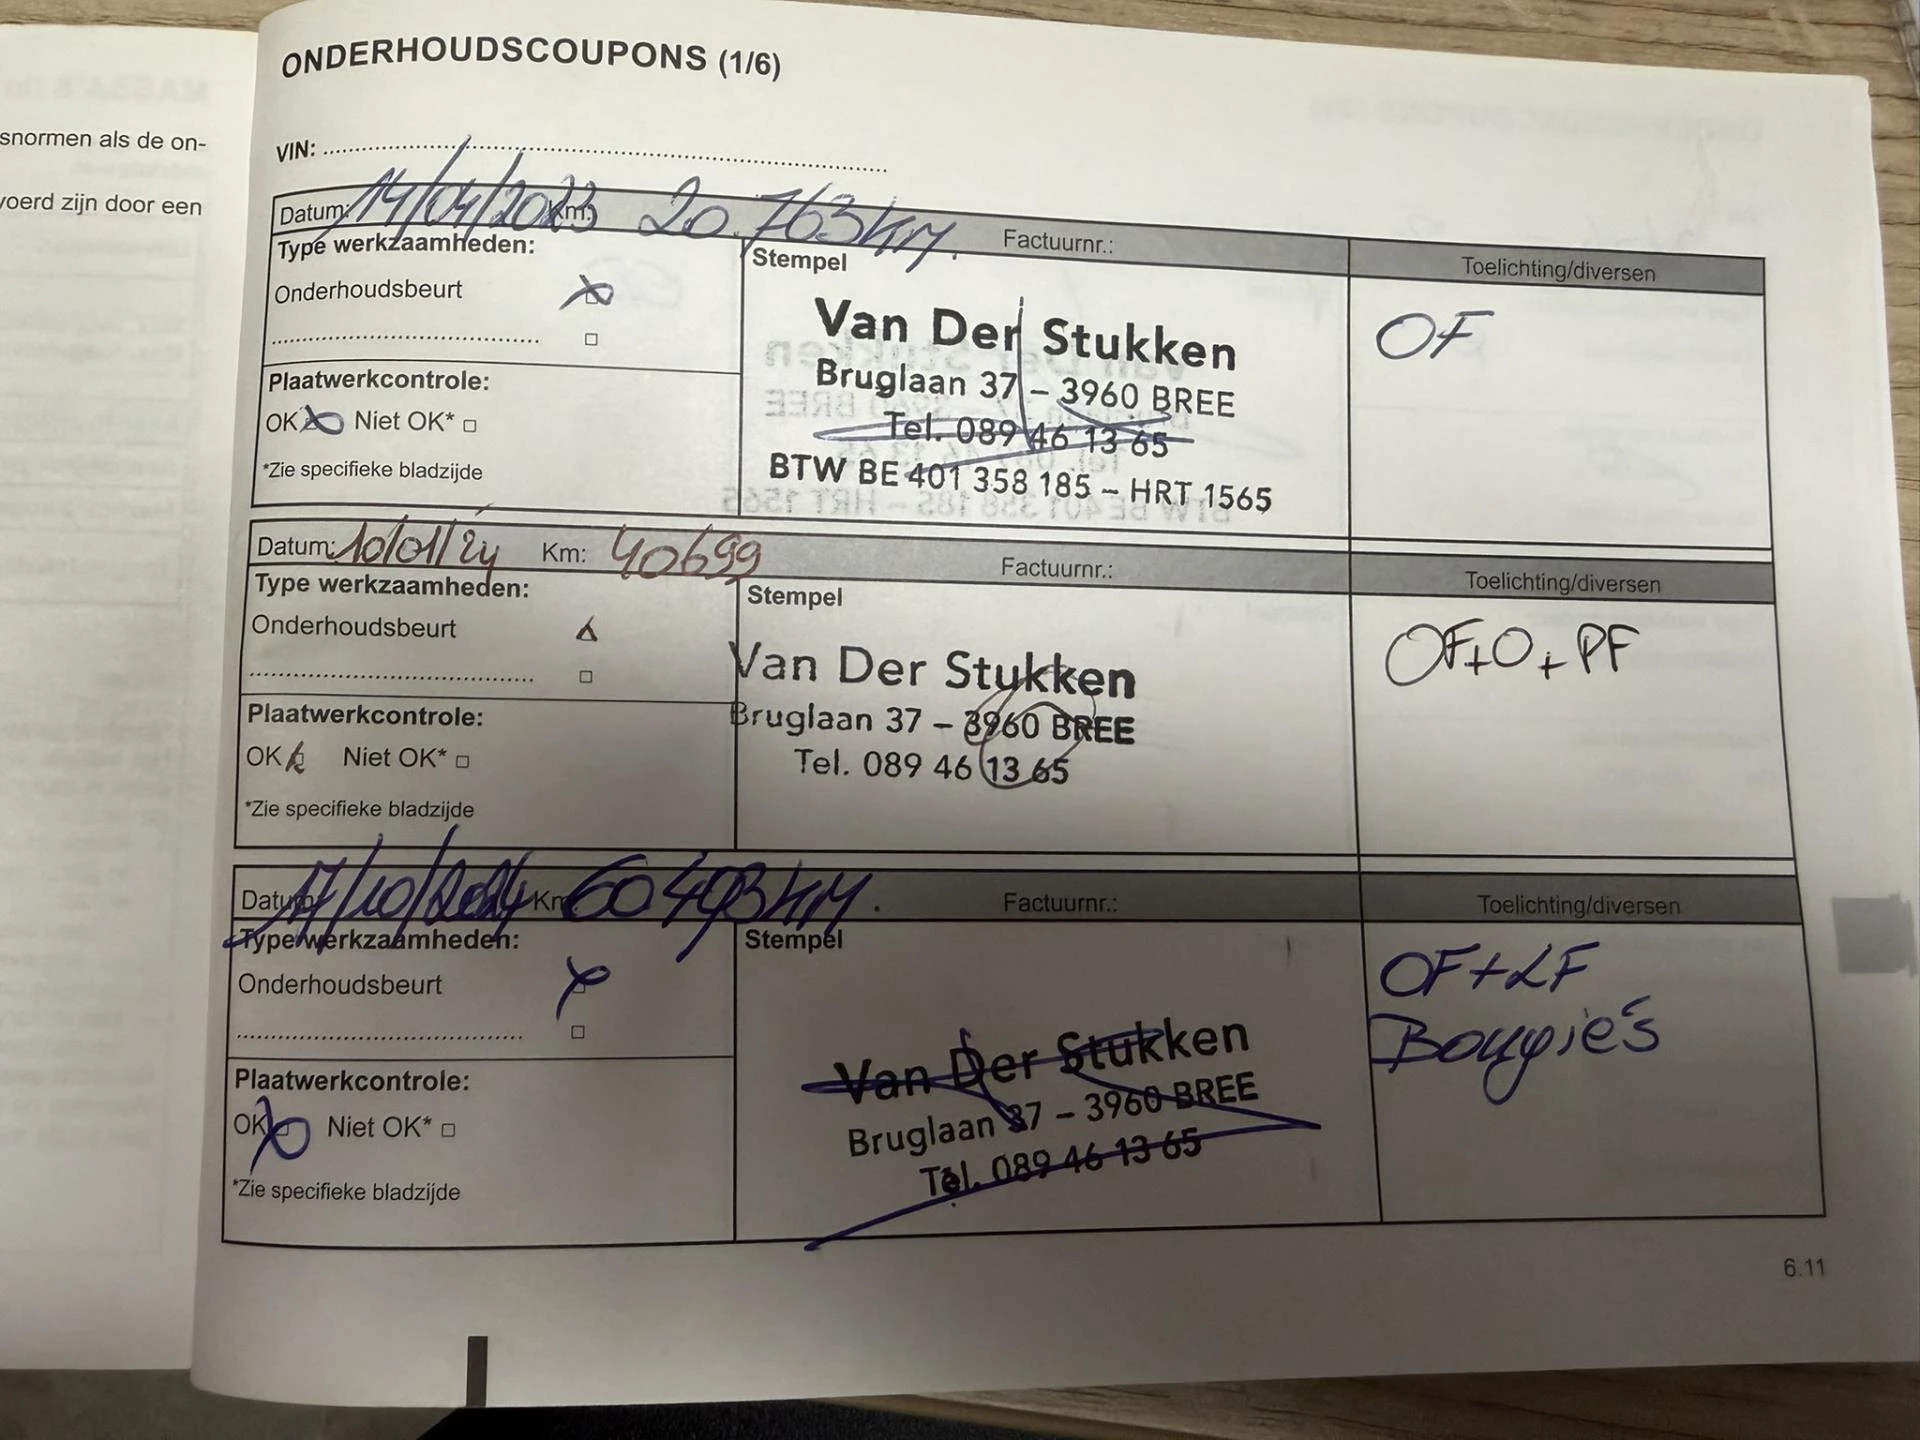 snormen als de on-
voerd zijn door een
ONDERHOUDSCOUPONS (1/6)
VIN:
Datum: 14/04/2023 Km: 20.763km. Factuurnr.: Toelichting/diversen
Type werkzaamheden:
Stempel
Onderhoudsbeurt
OF
Van Der Stukken
Bruglaan 37 – 3960 BREE
Tel. 089 46 13 65
BTW BE 401 358 185 – HRT 1565
Plaatwerkcontrole:
OK Niet OK*
*Zie specifieke bladzijde
Datum: 10/01/24 Km: 40699 Factuurnr.: Toelichting/diversen
Type werkzaamheden:
Stempel
Onderhoudsbeurt
OF+O+PF
Van Der Stukken
Bruglaan 37 – 3960 BREE
Tel. 089 46 13 65
Plaatwerkcontrole:
OK Niet OK*
*Zie specifieke bladzijde
Datum: 17/10/2024 Km: 60493km. Factuurnr.: Toelichting/diversen
Type werkzaamheden:
Stempel
Onderhoudsbeurt
OF+LF
Bougie's
Van Der Stukken
Bruglaan 37 – 3960 BREE
Tel. 089 46 13 65
Plaatwerkcontrole:
OK Niet OK*
*Zie specifieke bladzijde
6.11